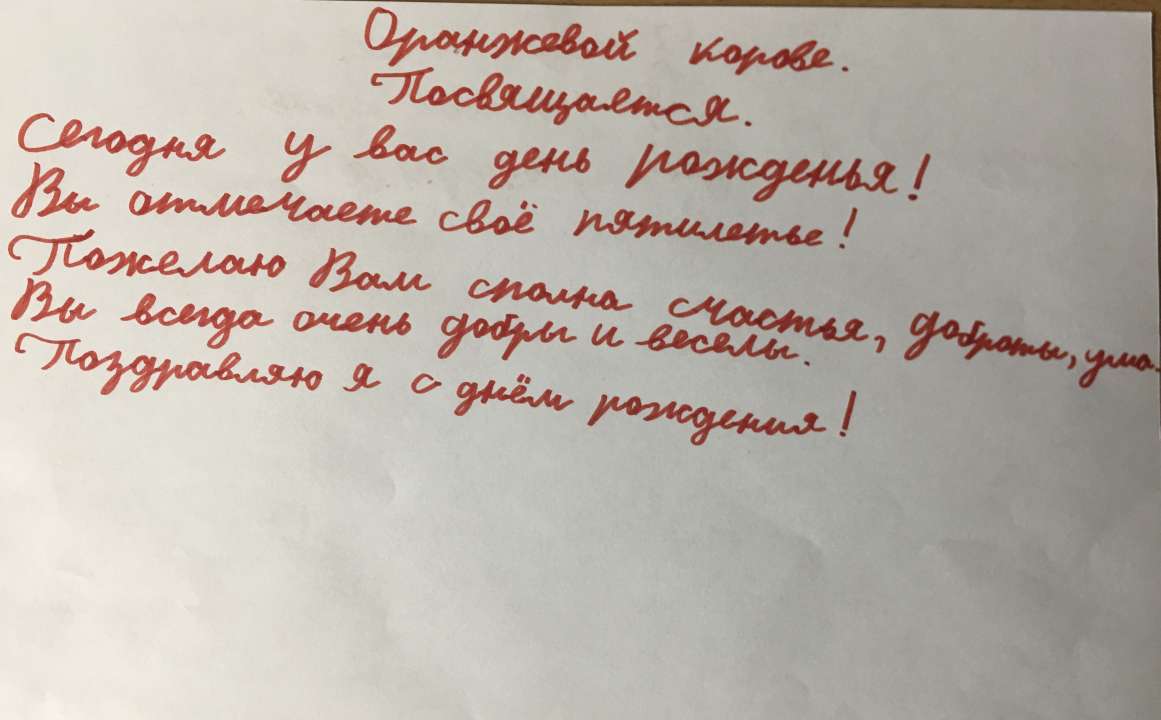 Оранжевой корове.
Посвящается.
Сегодня у вас день рожденья!
Вы отмечаете своё пятилетье!
Пожелаю Вам сполна счастья, доброты, ума.
Вы всегда очень добры и веселы.
Поздравляю я с днём рождения!